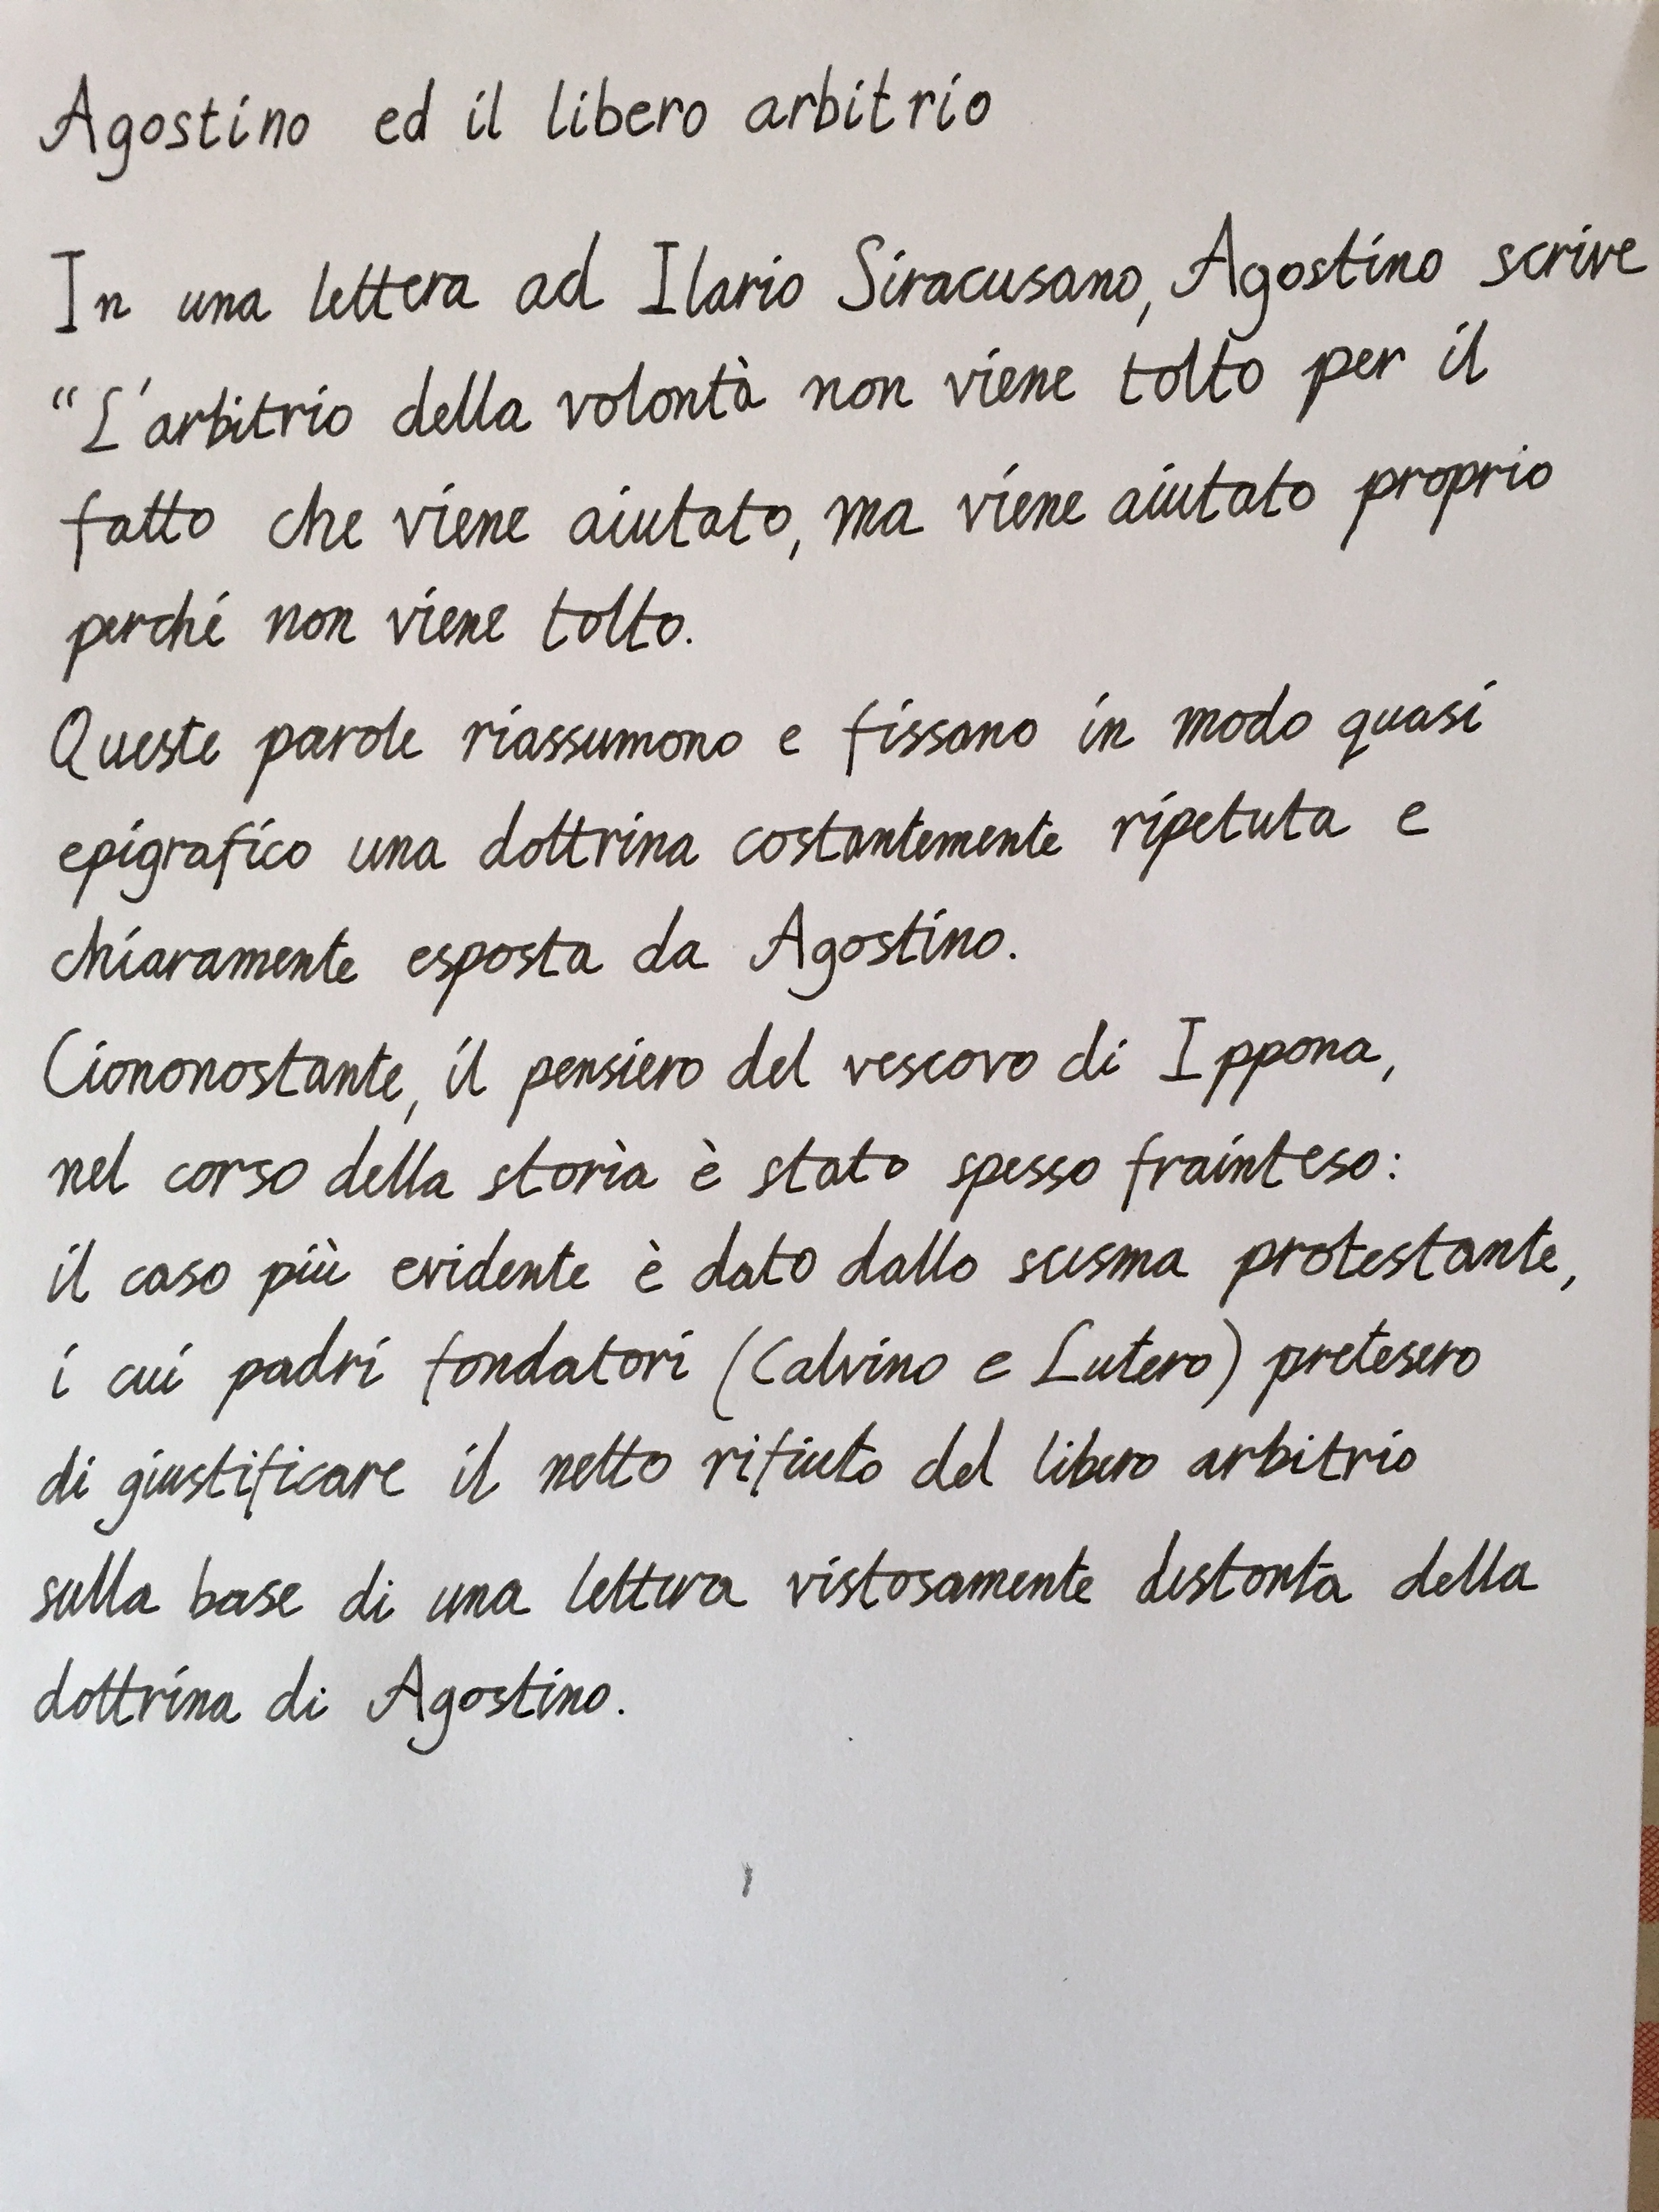 Agostino ed il libero arbitrio
In una lettera ad Ilario Siracusano, Agostino scrive
“L'arbitrio della volontà non viene tolto per il
fatto che viene aiutato, ma viene aiutato proprio
perché non viene tolto.
Queste parole riassumono e fissano in modo quasi
epigrafico una dottrina costantemente ripetuta e
chiaramente esposta da Agostino.
Ciononostante, il pensiero del vescovo di Ippona,
nel corso della storia è stato spesso frainteso:
il caso più evidente è dato dallo scisma protestante,
i cui padri fondatori (Calvino e Lutero) pretesero
di giustificare il netto rifiuto del libero arbitrio
sulla base di una lettura vistosamente distorta della
dottrina di Agostino.